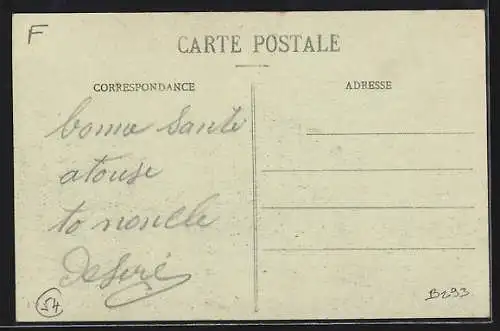 F
CARTE POSTALE
CORRESPONDANCE
ADRESSE
bonne Sante
atouse
to nouelle
Desiré
54
B293